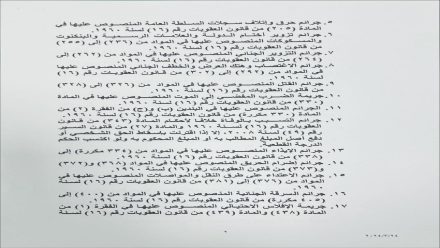 ٥. جرائم حرق وإتلاف سجلات السلطة العامة المنصوص عليها في
المادة (٢٠٥) من قانون العقوبات رقم (١٦) لسنة ١٩٦٠.
٦. جرائم تزوير أختام الدولة والعلامات الرسمية والبنكنوت
والمسكوكات المنصوص عليها في المواد من (٢٣٦) إلى (٢٥٥)
من قانون العقوبات رقم (١٦) لسنة ١٩٦٠.
٧. جرائم التزوير الجنائي المنصوص عليها في المواد من (٢٦٢) إلى
(٢٦٥) من قانون العقوبات رقم (١٦) لسنة ١٩٦٠.
٨. جرائم الاغتصاب وهتك العرض والخطف الجنائي المنصوص عليها
في المواد من (٢٩٢) إلى (٣٠٢) من قانون العقوبات رقم (١٦) لسنة
١٩٦٠.
٩. جرائم القتل المنصوص عليها في المواد من (٣٢٦) إلى (٣٢٨)
من قانون العقوبات رقم (١٦) لسنة ١٩٦٠.
١٠. جريمة الضرب المفضي إلى الموت المنصوص عليها في المادة
(٣٣٠) من قانون العقوبات رقم (١٦) لسنة ١٩٦٠.
١١. الجرائم المنصوص عليها في البندين (ب) و(ج) من الفقرة (٢) من
المادة (٣٣٠ مكررة) من قانون العقوبات رقم (١٦) لسنة ١٩٦٠.
١٢. جرائم التسبب بالوفاة خلافا لأحكام المادة (٣٤٣) من قانون
العقوبات رقم (١٦) لسنة ١٩٦٠ والمادة (٢٧) من قانون السير
رقم (٤٩) لسنة ٢٠٠٨، إلا إذا اقترنت بإسقاط الحق الشخصي أو
دفع أصل المبلغ المطالب به أو المحكوم به ولو اكتسب الحكم
الدرجة القطعية.
١٣. جرائم الإيذاء المنصوص عليها في المواد من (٣٣٤ مكررة) إلى
(٣٣٨) من قانون العقوبات رقم (١٦) لسنة ١٩٦٠.
١٤. جرائم إضرام الحريق المنصوص عليها في المواد (٣٦٨) و(٣٧٢)
و(٣٧٣) من قانون العقوبات رقم (١٦) لسنة ١٩٦٠.
١٥. جرائم الاعتداء على طرق النقل والمواصلات المنصوص عليها في
المواد من (٣٧٦) إلى (٣٨١) من قانون العقوبات رقم (١٦) لسنة
١٩٦٠.
١٦. جرائم السرقة الجنائية المنصوص عليها في المواد من (٤٠٠) إلى
(٤٠٥ مكررة) من قانون العقوبات رقم (١٦) لسنة ١٩٦٠.
١٧. جريمة الإفلاس الاحتيالي المنصوص عليها في الفقرة (١) من
المادة (٤٣٨) والمادة (٤٣٩) من قانون العقوبات رقم (١٦) لسنة